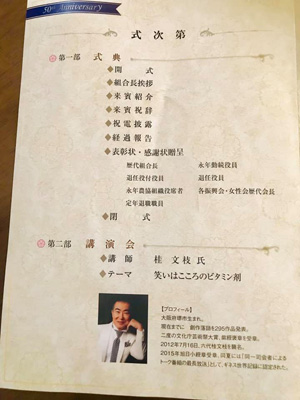 50th Anniversary
式次第
第一部 式典
◆開 式
◆組合長挨拶
◆来賓紹介
◆来賓祝辞
◆祝電披露
◆経過報告
◆表彰状・感謝状贈呈
歴代組合長 永年勤続役員
退任役付役員 退任役員
永年農協組織役席者 各振興会・女性会歴代会長
定年退職職員
◆閉 式
第二部 講演会
◆講 師 桂 文枝 氏
◆テーマ 笑いはこころのビタミン剤
【プロフィール】
大阪府堺市生まれ。
現在までに 創作落語を295作品発表。
二度の文化庁芸術祭大賞、紫綬褒章を受章。
2012年7月16日、六代桂文枝を襲名。
2015年旭日小綬章受章。同夏には「同一司会者による
トーク番組の最長放送」として、ギネス世界記録に認定された。